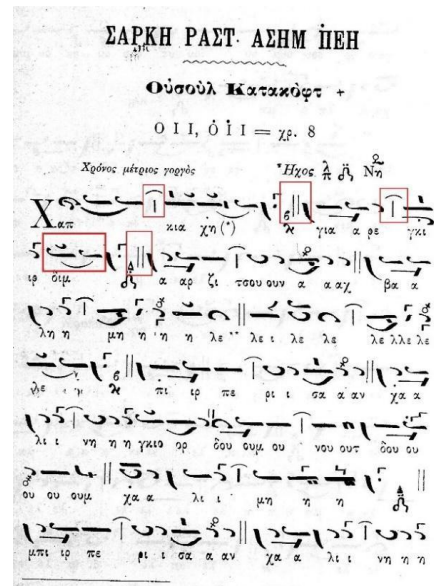 ΣΑΡΚΗ ΡΑΣΤ· ΑΣΗΜ ΠΕΗ
Οὐσοὺλ Κατακόφτ +
Ο Ι Ι, Ο Ι Ι = χρ. 8
Χρόνος μέτριος γοργὸς Ἦχος λ π Νη
Χ απ κια χη (*) για α ρε γκι
ιρ διμ α αρ ζι τσου ουν α α αχ βα α
λη η μη η η η λε λε ι λε λε λε λλε λε
λε ε πι ιρ πε ρι ι σα α αν χα α
λι ι νη η η γκιο ορ δου ουμ ου νου ουτ δου ου
ου ου ουμ χα α λι ι μη η η
μπι ιρ πε ρι ι σα α αν χα α λι ι νη η η